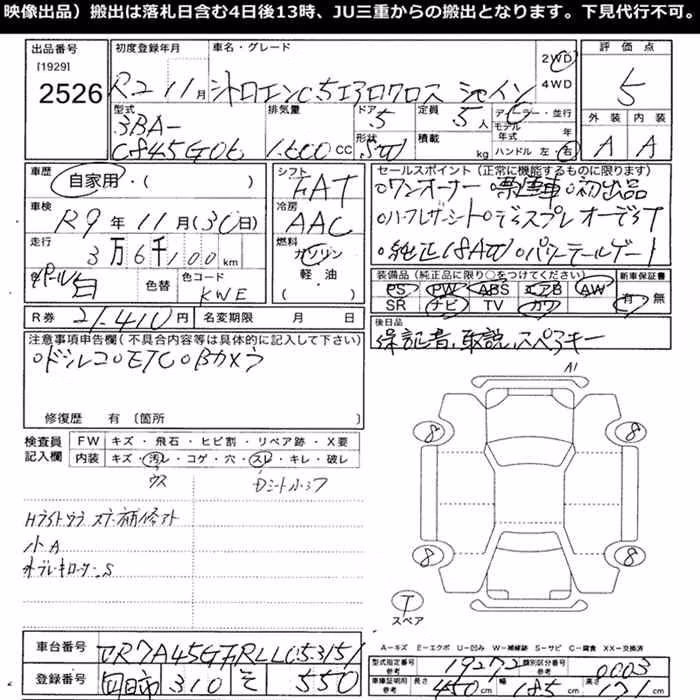 映像出品）搬出は落札日含む4日後13時、JU三重からの搬出となります。下見代行不可。
出品番号 初度登録年月 車名・グレード 2WD 評価点
[1929] 4WD
2526 R2 11月 シトロエンC5エアロクロス シャイン 5
型式 排気量 ドア 定員 ディーラー・並行 外装 内装
3BA- 5 5人 モデル年式 年
C845G06 1.600cc 形状 SW 積載 kg ハンドル 左・右 A A
車歴 自家用・( ) シフト FAT セールスポイント（正常に機能するものに限ります）
車検 R9年11月(30日) 冷房 AAC ・ワンオーナー・禁煙車・初出品
走行 3万6千100km 燃料 ガソリン ・ハーフレザーシート・ディスプレイオーディオ
軽油 ( ) ・純正18AW・パワーテールゲート
パール 白 色替 色コード KWE 装備品（純正品に限り○をつけてください） 新車保証書
PS PW ABS エアB AW 有・無
SR ナビ TV カワ
R券 21.410円 名変期限 月 日 後日品
注意事項申告欄（不具合内容等は具体的に記入して下さい） 保証書、取説、スペアキー
・ドラレコ・ETC・Bカメラ
修復歴 有〔箇所 〕
A1
検査員 FW キズ・飛石・ヒビ割・リペア跡・X要
記入欄 内装 キズ・汚レ・コゲ・穴・スレ・キレ・破レ
ウス Dシート
8 8
小A
S
8 8
T
スペア
A－キズ E－エクボ U－凹み W－補修跡 S－サビ C－腐食 XX－交換済
車台番号 VR7A45GFRLL053151 型式指定番号 参考 19272 類別区分番号 参考 0003
登録番号 四日市 310 そ 550 車検証明用 参考 長さ 450cm 幅 185cm 高さ 171cm